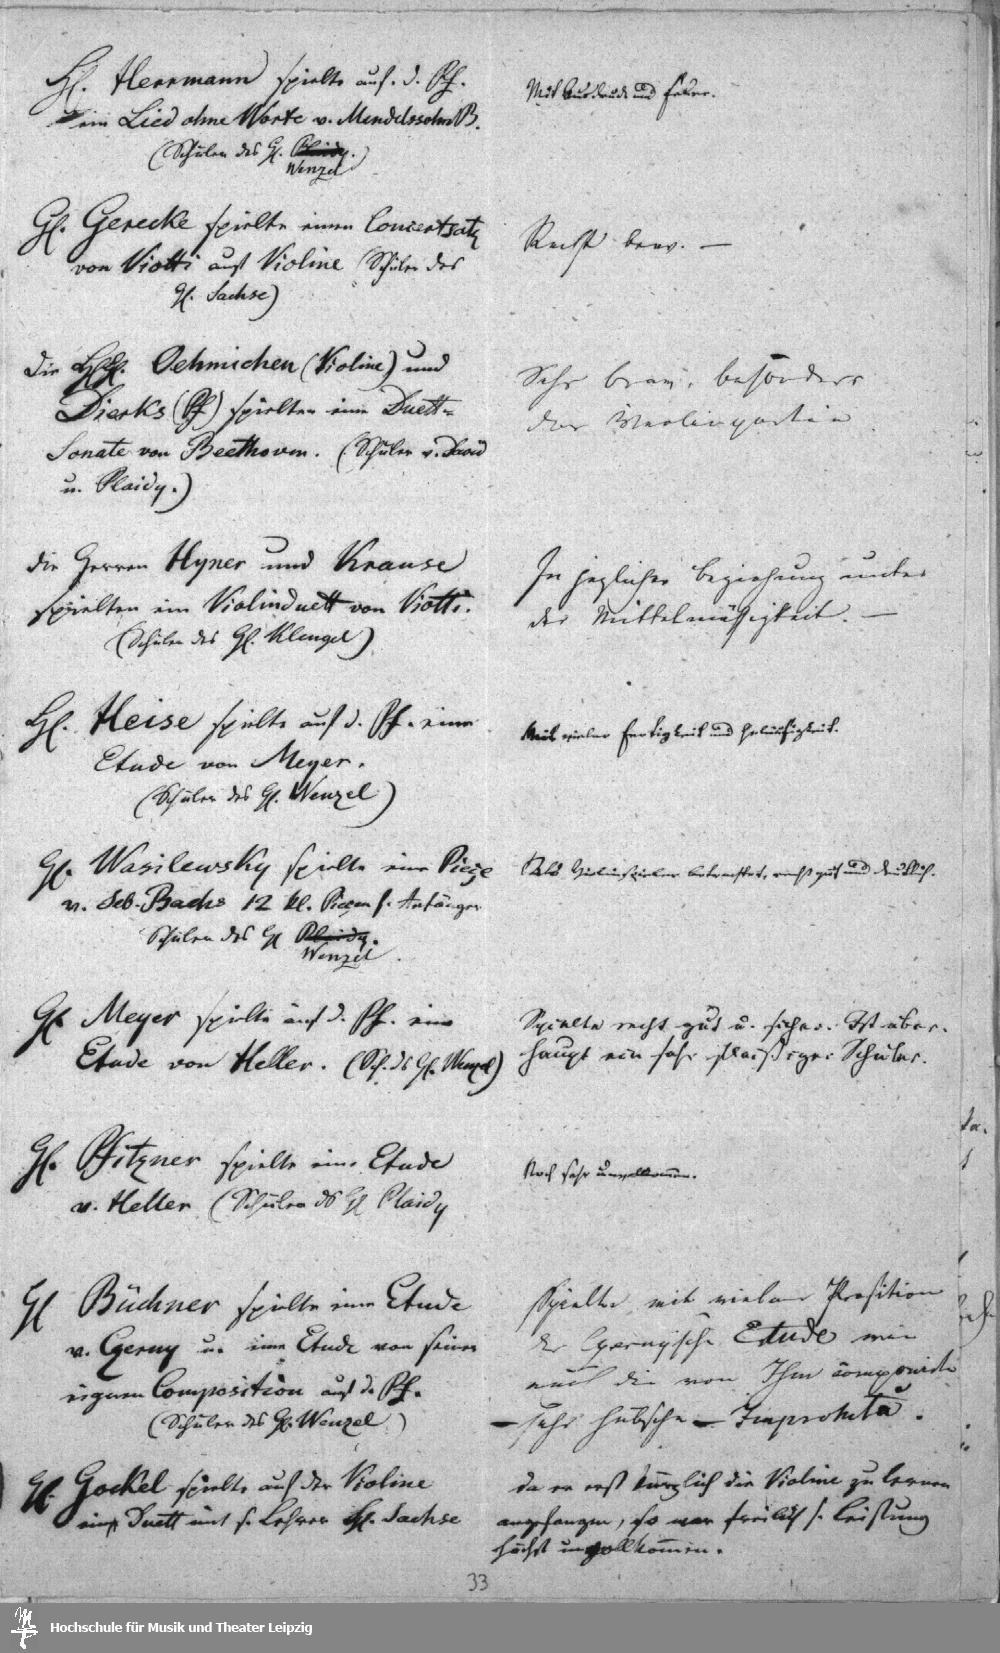 H. Herrmann spielte auf d. Pf.
ein Lied ohne Worte v. Mendelssohn B.
(Schüler des H. Plaidy.)
Wenzel
Mit Ausdruck und Feuer.
H. Gerecke spielte einen Concertsatz
von Viotti auf Violine (Schüler des
H. Sachse)
Recht brav. —
die HH. Oehmichen (Violine) und
Dierks (Pf) spielten eine Duett-
Sonate von Beethoven. (Schüler v. David
u. Plaidy.)
Sehr brav, besonders
der Violinpartie
die Herren Hyner und Krause
spielten ein Violinduett von Viotti.
(Schüler des H. Klengel)
In jeglicher Beziehung unter
der Mittelmäßigkeit. —
H. Heise spielte auf d. Pf. eine
Etude von Meyer.
(Schüler des H. Wenzel)
Mit vieler Fertigkeit und Geläufigkeit.
H. Wasilewsky spielte eine Pieçe
v. Seb. Bachs 12 kl. Pieçen f. Anfänger
Schüler des H Plaidy.
Wenzel
Als Violinspieler betrachtet, recht gut und deutlich.
H. Meyer spielte auf d. Pf. eine
Etude von Heller. (Sch. ds H. Wenzel)
Spielte recht gut u. sicher. Ist über-
haupt ein sehr fleißiger Schüler.
H. Pfitzner spielte eine Etude
v. Heller (Schüler ds H Plaidy
Noch sehr unvollkommen.
H Büchner spielte eine Etude
v. Czerny u. eine Etude von seiner
eignen Composition auf d. Pf.
(Schüler des H. Wenzel)
Spielte mit vieler Präsition
die Czernysche Etude wie
auch die von Ihm componirte
— sehr hübsche —
H. Gockel spielte auf der Violine
ein Duett mit s. Lehrer H. Sachse
da er erst kürzlich die Violine zu lernen
angefangen, so war freilich s. Leistung
höchst unvollkommen.
33
Hochschule für Musik und Theater Leipzig